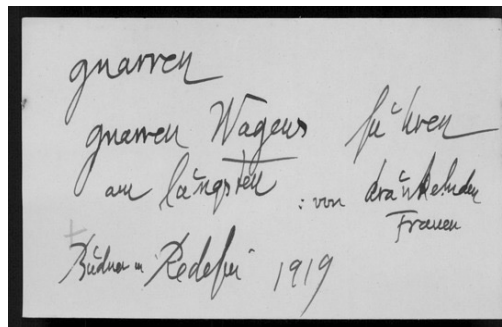 gnarren
gnarren Wagens führen
am längsten : von kränkelnden
Frauen
Büdner in Redefin 1919